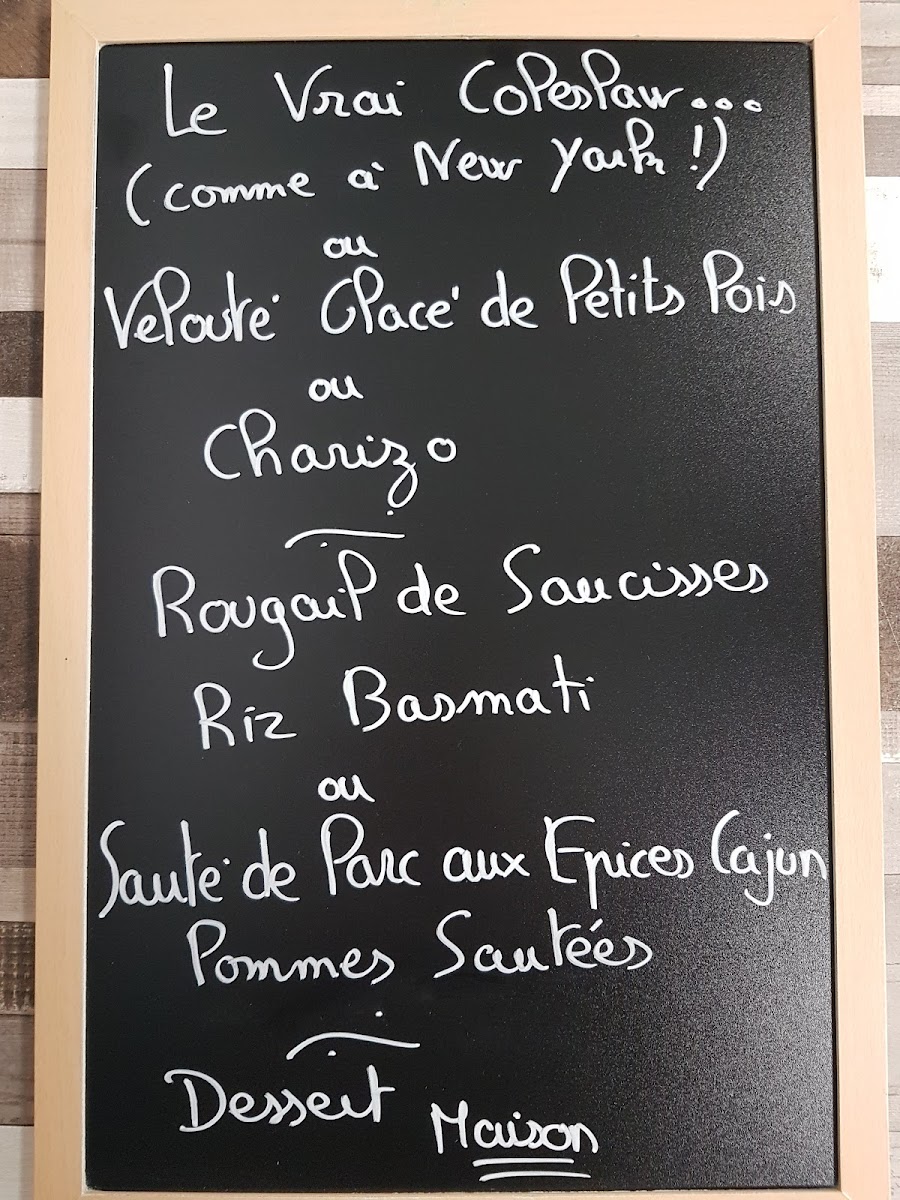 Le Vrai Coleslaw...
(comme à New York !)
ou
Velouté Glacé de Petits Pois
ou
Chorizo
Rougail de Saucisses
Riz Basmati
ou
Sauté de Porc aux Epices Cajun
Pommes Sautées
Dessert Maison